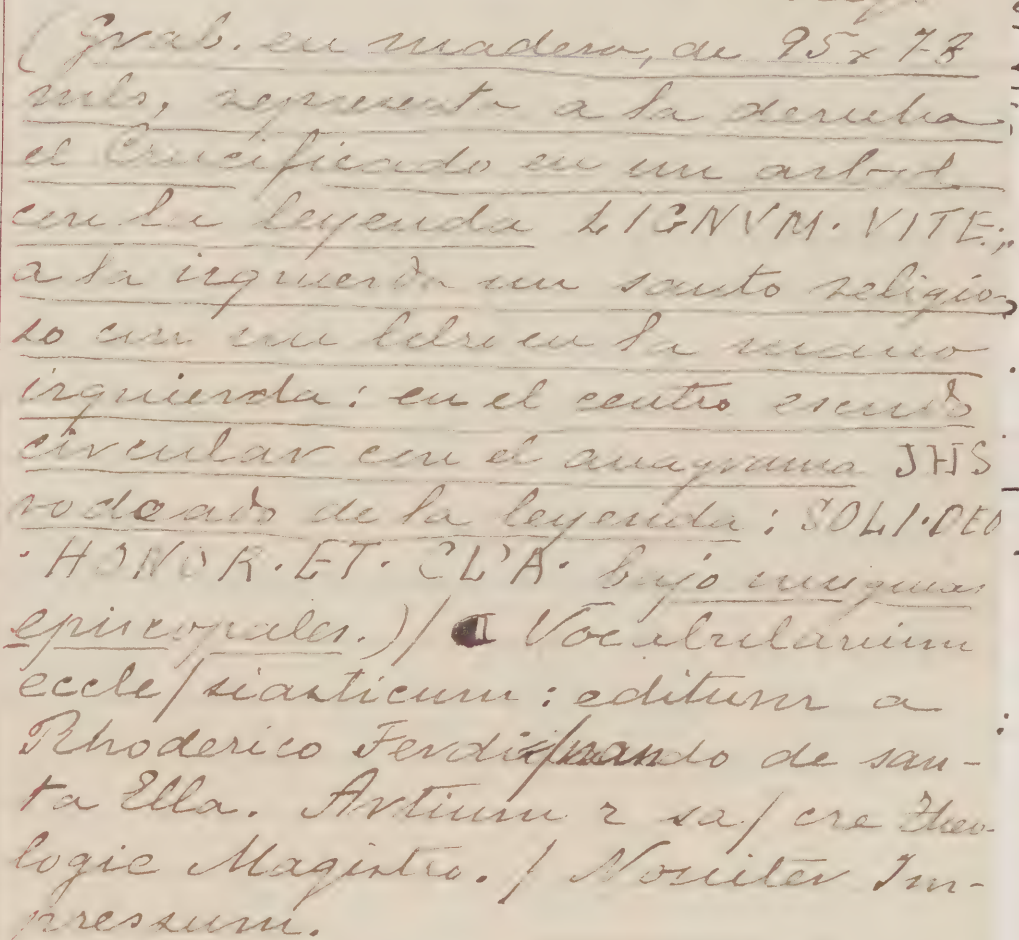 (Grab. en madera, de 95 x 73
mls, representa a la derecha
el Crucificado en un arbol
con la leyenda LIGNVM. VITE;,
a la izquierda un santo religio-
so con un libro en la mano
izquierda: en el centro escudo
circular con el anagrama JHS
rodeado de la leyenda: SOLI·DEO
·HONOR·ET·GL'A· bajo insignias
episcopales.)/ Vocabularium
eccle/siasticum: editum a
Rhoderico Ferdi/nando de san-
ta Ella. Artium 2 sa/cre Theo-
logie Magistro. / Nouiter Im-
pressum.